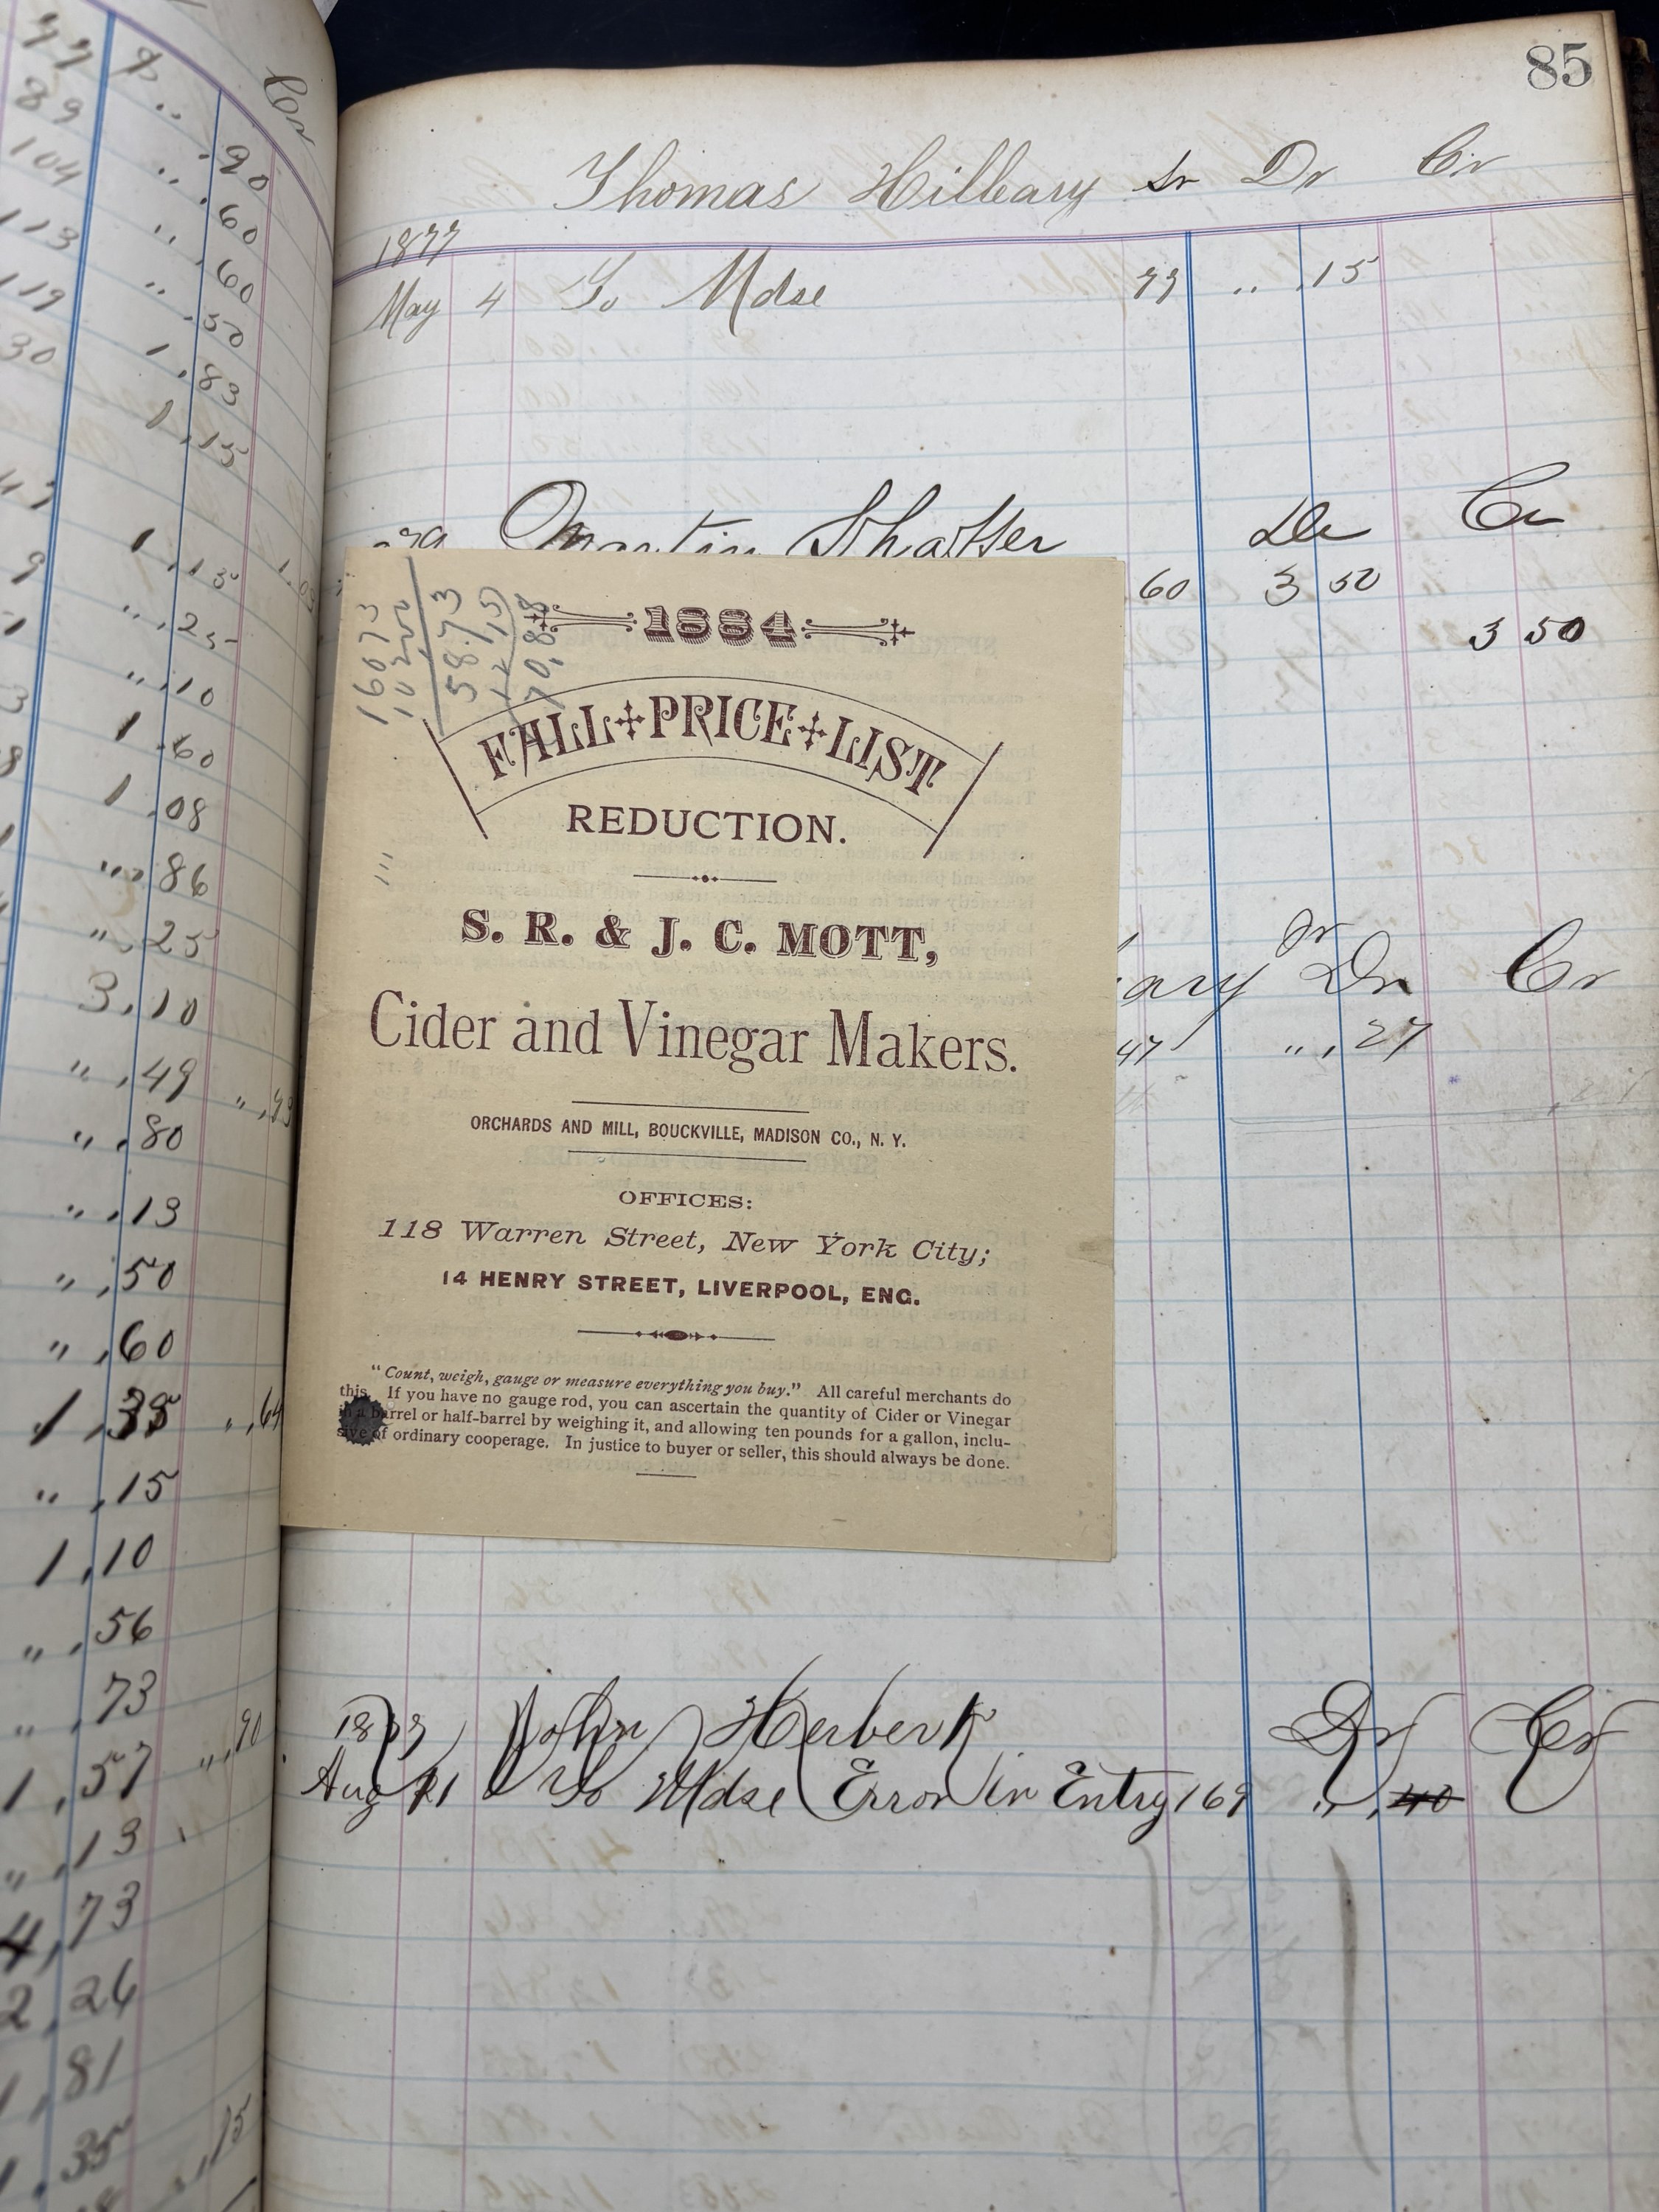 85
Thomas Hilleary Sr Dr Cr
1877
May 4 To Mdse 73 " .15
Martin Shaffer Dr Cr
60 3 50
3 50
1884
FALL PRICE LIST
REDUCTION.
S. R. & J. C. MOTT,
Cider and Vinegar Makers.
ORCHARDS AND MILL, BOUCKVILLE, MADISON CO., N. Y.
OFFICES:
118 Warren Street, New York City;
14 HENRY STREET, LIVERPOOL, ENG.
"Count, weigh, gauge or measure everything you buy." All careful merchants do
this. If you have no gauge rod, you can ascertain the quantity of Cider or Vinegar
in a barrel or half-barrel by weighing it, and allowing ten pounds for a gallon, inclu-
sive of ordinary cooperage. In justice to buyer or seller, this should always be done.
58.73
70.88
ary Jr Dr Cr
47 " , 27
John Herbert Dr Cr
Aug To Mdse Error in Entry 169 " , 40
Cr
77
89 " .90
104 " .60
113 " .60
119 " .50
30 1 .83
1 .15
1 .15
" .25
" .10
1 .60
1 .08
" .86
" .25
3 .10
" .49
" .80
" .13
" .50
" .60
1 .35 " .64
" .15
1 .10
" .56
" .73
1 .57 " .90
" .13
4 .73
2 .26
1 .81
1 .35 " .15